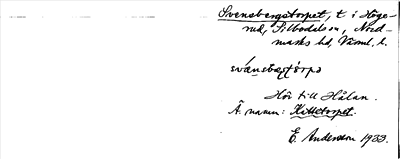 Svensbergstorpet, t. i Höge-
rud, Silbodals sn, Nord-
marks hd, Värml. l.
Hör till Hålan.
Ä. namn: Kattetorpet.
E. Andersson 1933.